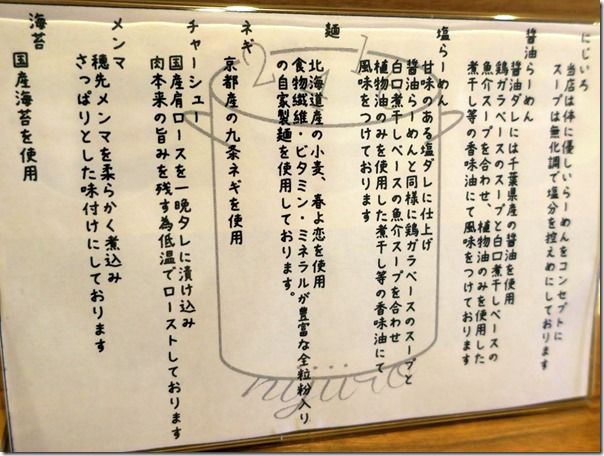 にじいろ
当店は体に優しいらーめんをコンセプトに
スープは無化調で塩分を控えめにしております
醤油らーめん
醤油ダレには千葉県産の醤油を使用
鶏ガラベースのスープと白口煮干しベースの
魚介スープを合わせ、植物油のみを使用した
煮干し等の香味油にて風味をつけております
塩らーめん
甘味のある塩ダレに仕上げ
醤油らーめんと同様に鶏ガラベースのスープと
白口煮干しベースの魚介スープを合わせ
植物油のみを使用した煮干し等の香味油にて
風味をつけております
麺
北海道産の小麦、春よ恋を使用
食物繊維・ビタミン・ミネラルが豊富な全粒粉入り
の自家製麺を使用しております。
ネギ
京都産の九条ネギを使用
チャーシュー
国産肩ロースを一晩タレに漬け込み
肉本来の旨みを残す為低温でローストしております
メンマ
穂先メンマを柔らかく煮込み
さっぱりとした味付けにしております
海苔
国産海苔を使用
nijiiro